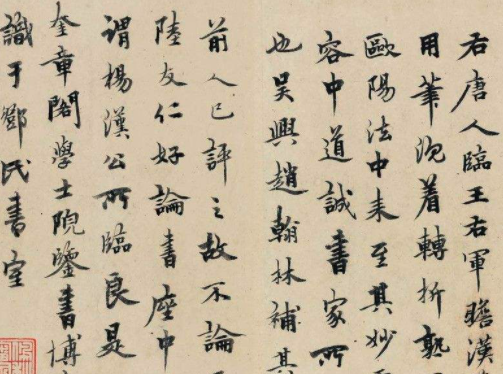 右唐人臨王右軍瞻漢
用筆沉着轉折熟
歐陽法中来至其妙
容中道誠書家所
也吴興趙翰林補其
前人已評之故不論
陸友仁好論書座中
謂楊漢公所臨良是
奎章閣學士院鑒書博
識于鄧氏書室